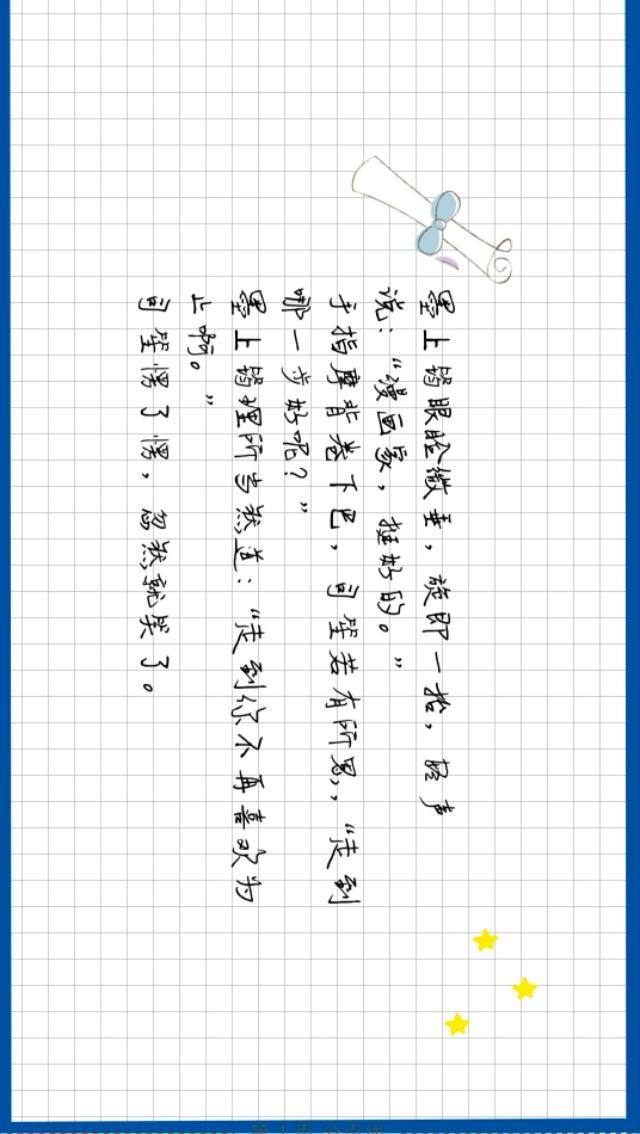 墨上筠眼睑微垂，旋即一抬，轻声
说：“漫画家，挺好的。”
手指摩背卷下巴，司笙若有所思，“走到
哪一步好呢？”
墨上筠理所当然道：“走到你不再喜欢为
止啊。”
司笙愣了愣，忽然就笑了。